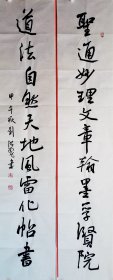 聖通妙理文章翰墨孚賢院
道法自然天地風雷化帖書
甲午秋劉
書